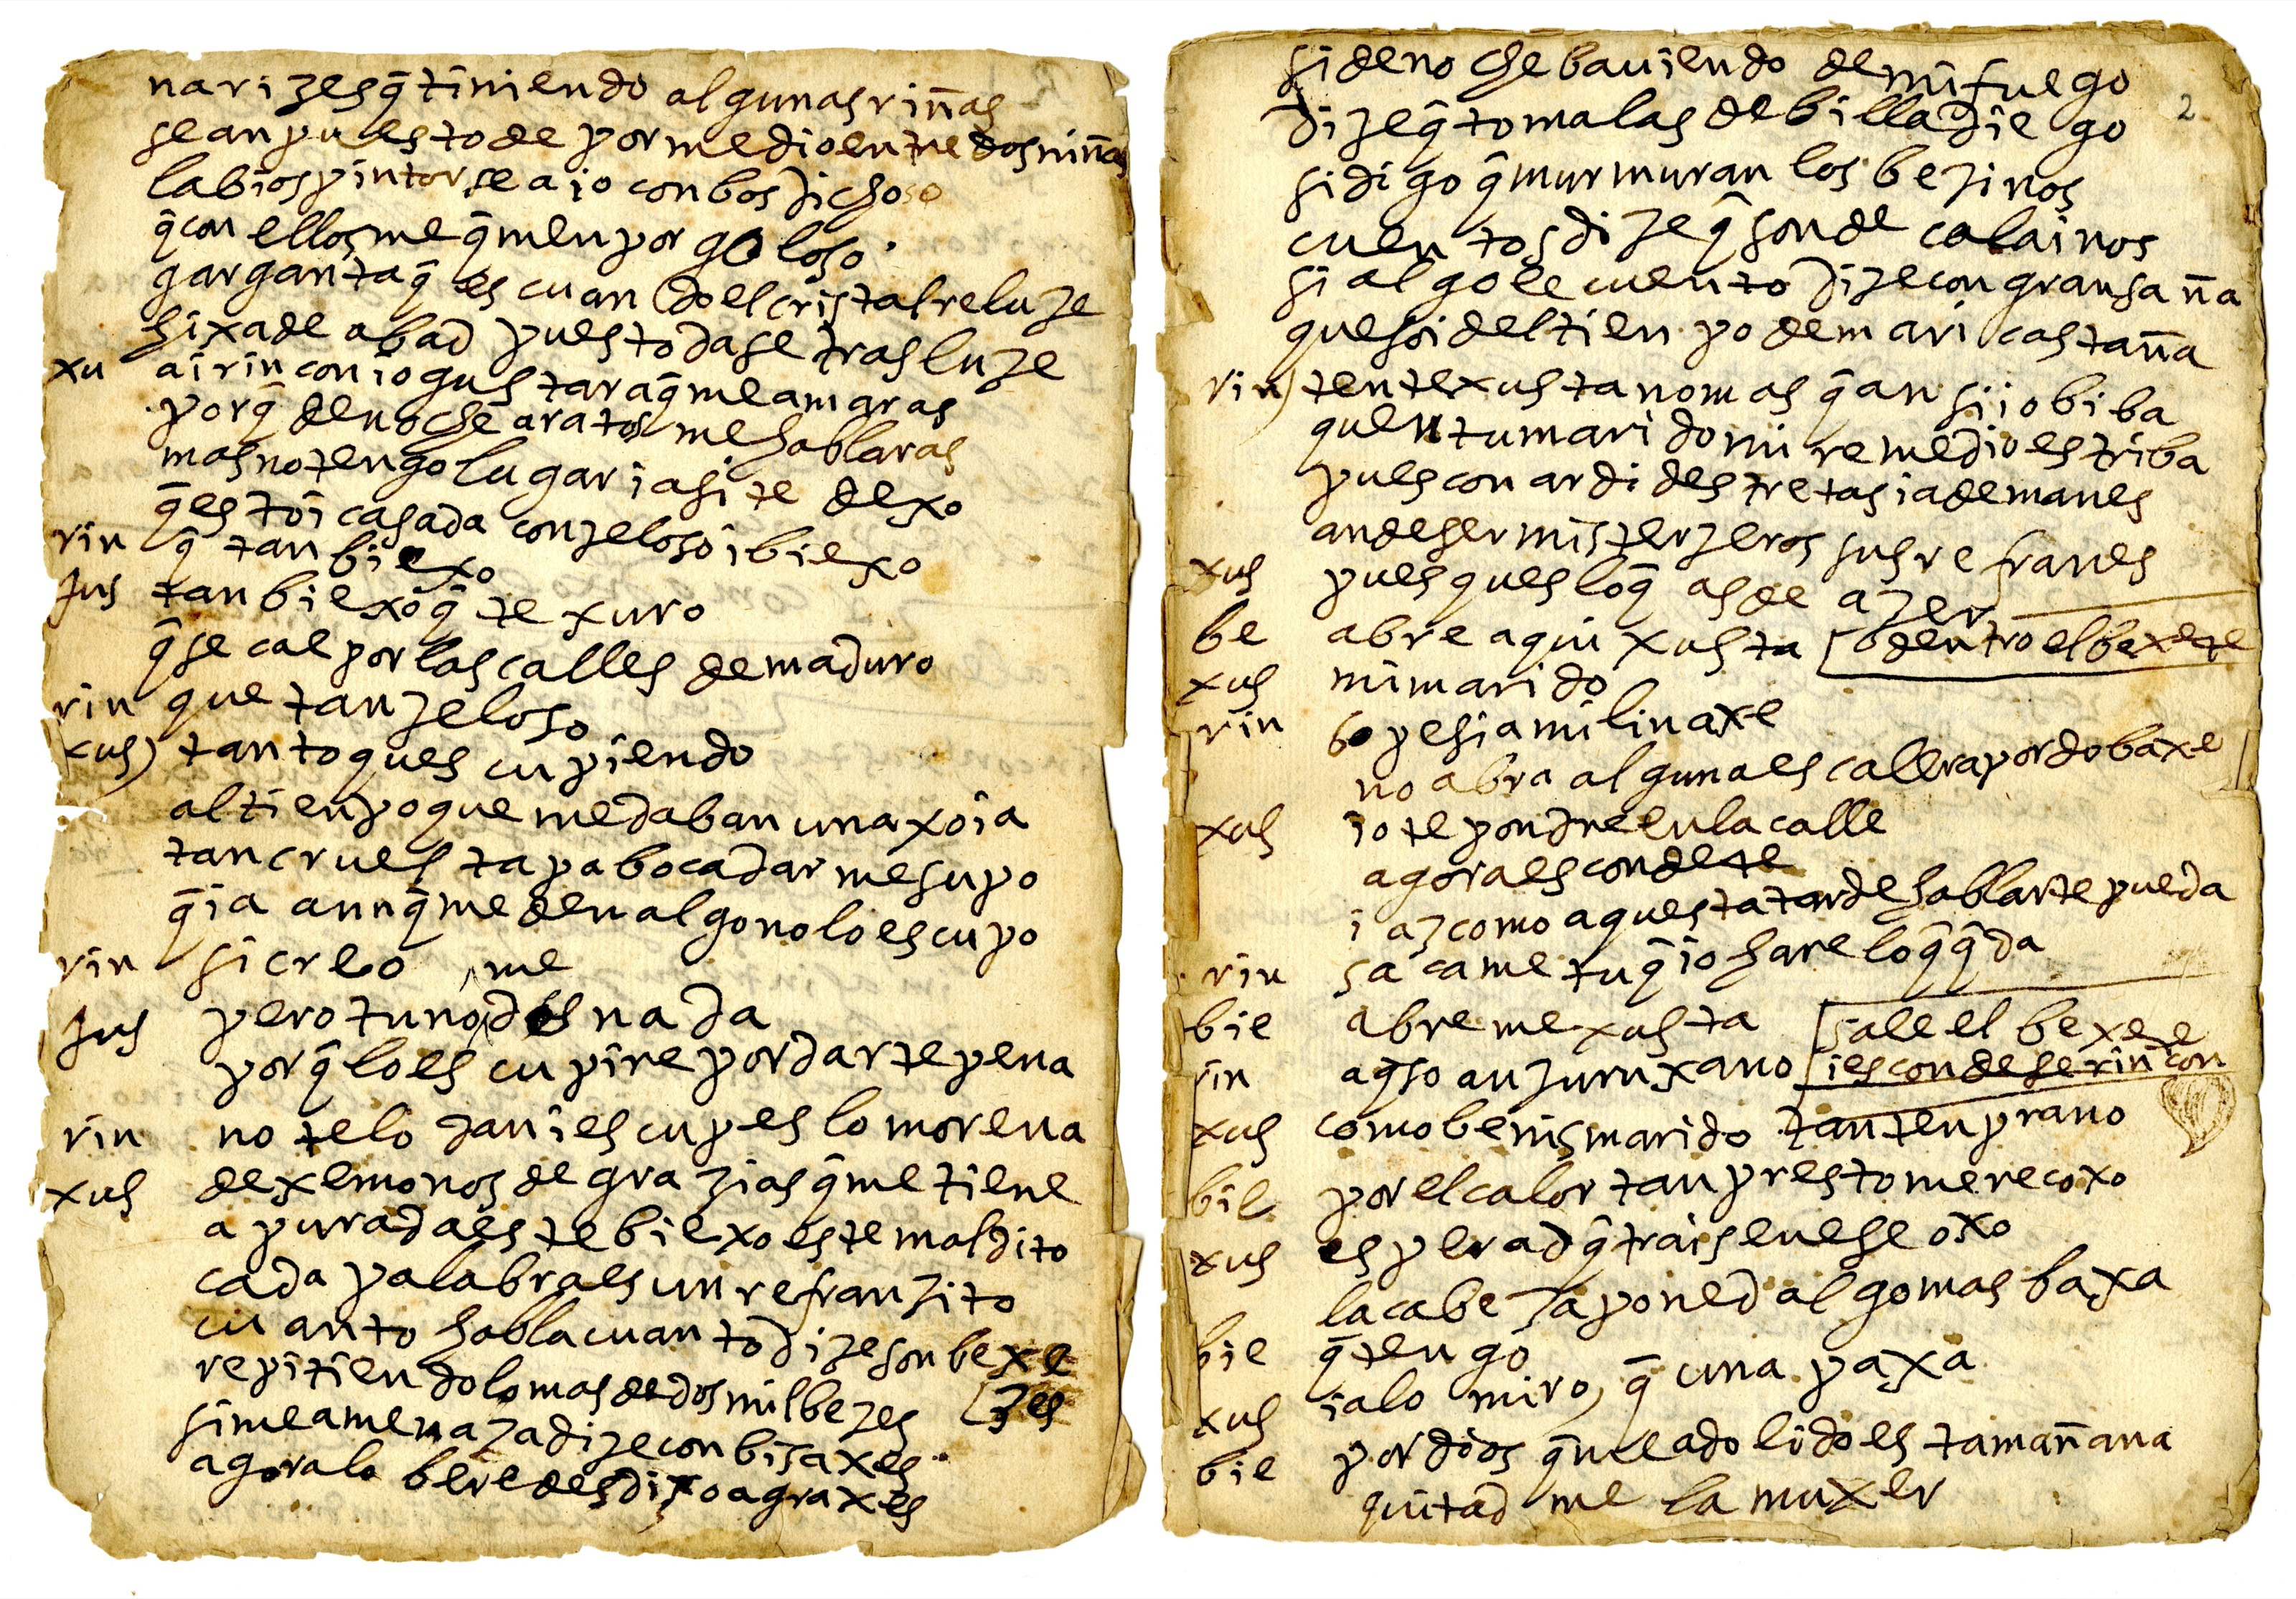 narizes q̃ tiniendo algunas riñas
se an puesto de por medio entre dos niñas
labios pintor sea io con bos dichoso
q̃ con ellos me q̃men por goloso
garganta q̃ es cuando el cristal reluze
hixa de abad pues toda se trasluze
xu ai rincon io gustara q̃ me amaras
porq̃ de noche a ratos me hablaras
mas no tengo lugar i asi te dexo
q̃ estoi casada con zeloso i biexo
rin q̃ tan biexo
Jus tan biexo q̃ te xuro
q̃ se cae por las calles de maduro
rin que tan zeloso
xus) tanto ques cupiendo
al tienpo que me daban una xoia
tan cruel tapaboca dar me supo
q̃ ia aunq̃ me den algo no lo escupo
rin si creo
me
Jus pero tu no das nada
porq̃ lo escupire por darte pena
rin no te lo dan i escupeslo morena
xus dexemonos de grazias q̃ me tiene
apurada este biexo este maldito
cada palabra es un refranzito
cuanto habla cuanto dize son bexe
repitiendolo mas de dos mil bezes [zes
si me amenaza dize con bisaxes
agora lo beredes dixo agraxes
si de noche bauiendo de mi fuego
2
dize q̃ toma las de billadiego
si digo q̃ murmuran los bezinos
cuentos dize q̃ son de calainos
si algo le cuento dize con gran saña
que soi del tienpo de mari castaña
rin) tente xusta no mas q̃ an si io biba
quen tu marido mi remedio estriba
pues con ardides tretas i ademanes
an de ser mis terzeros sus refranes
xus pues ques loq̃ as de azer
be abre aqui xusta [dentro el bexete
xus mi marido
rin o pesia mi linaxe
no abra alguna escalera por do baxe
xus io te pondre en la calle
agora escondete
i az como aquesta tarde hablarte pueda
rin sacame tu q̃ io hare loq̃ q̃da
bie abreme xusta [sale el bexete
rin agso an zuruxano [i escondese rincon
xus como benis marido tan tenprano
bie por el calor tan presto me recoxo
xus esperad q̃ trais en ese oxo
la cabeza poned algo mas baxa
bie q̃ tengo
xus ia lo miro, q̃ una paxa
bie por dios q̃ me a dolido esta mañana
quitad me la muxer